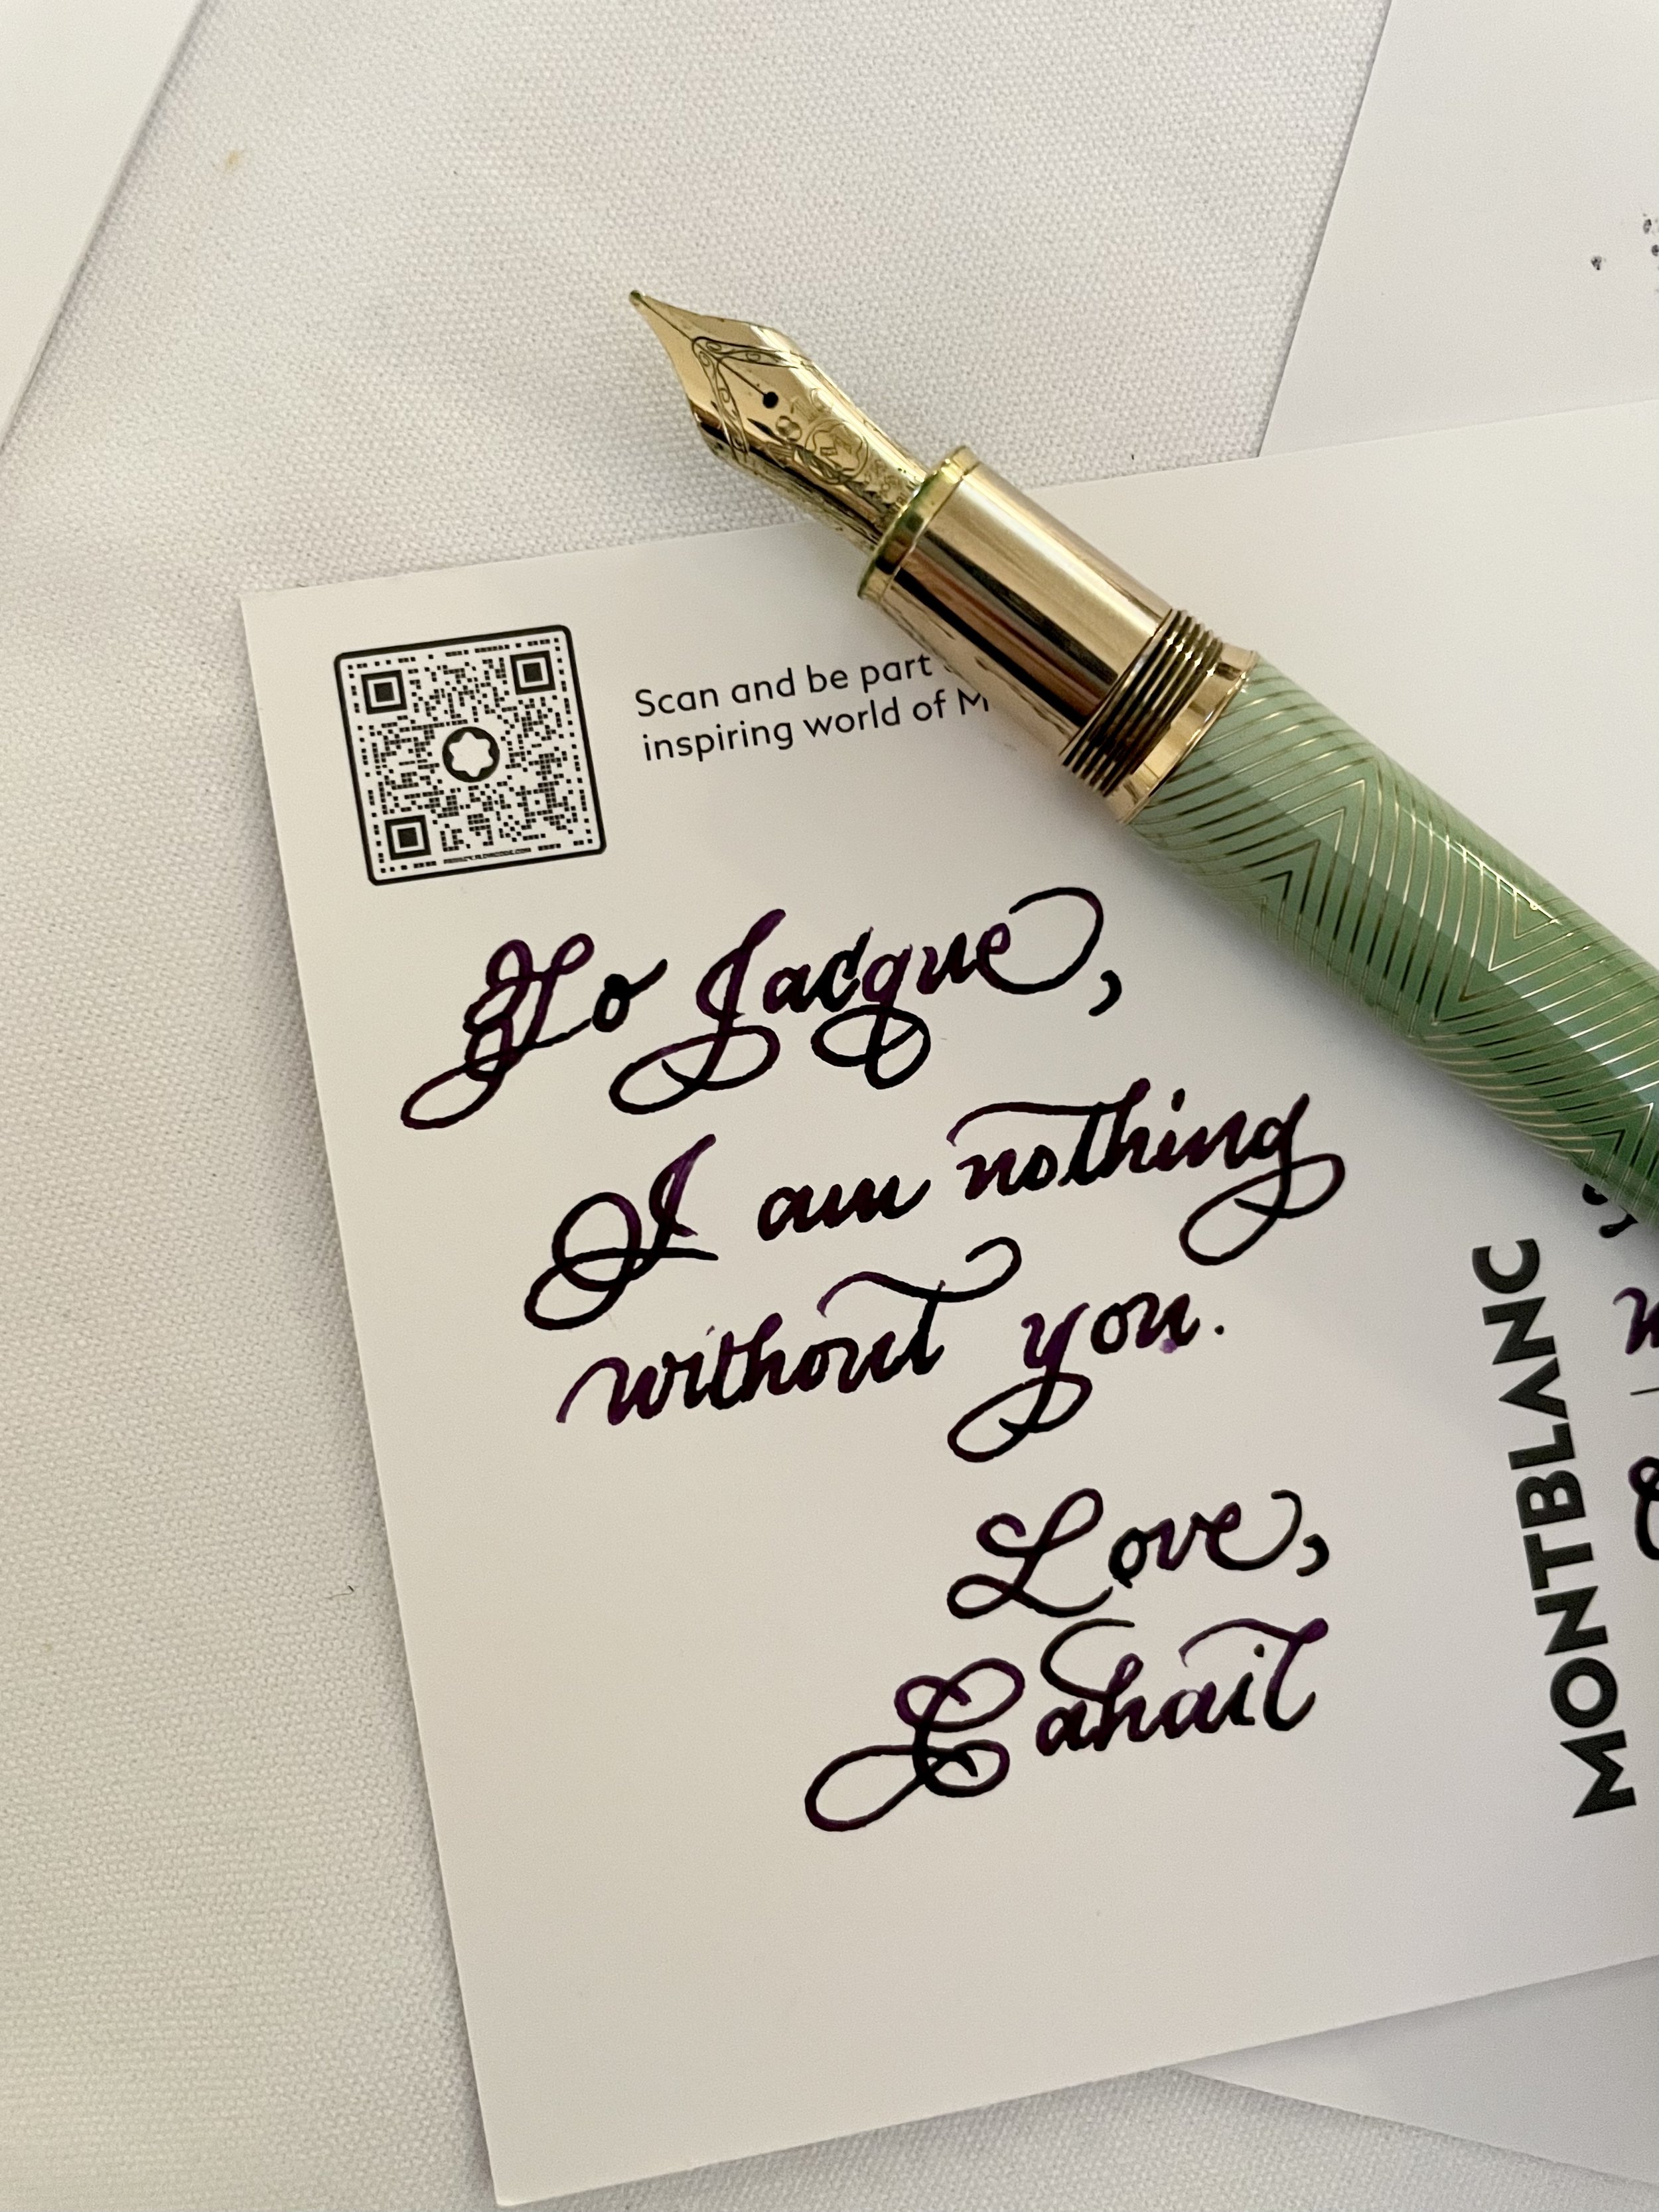 Scan and be part
inspiring world of M
To Jacque,
I am nothing
without you.
Love,
Cahail
MONTBLANC